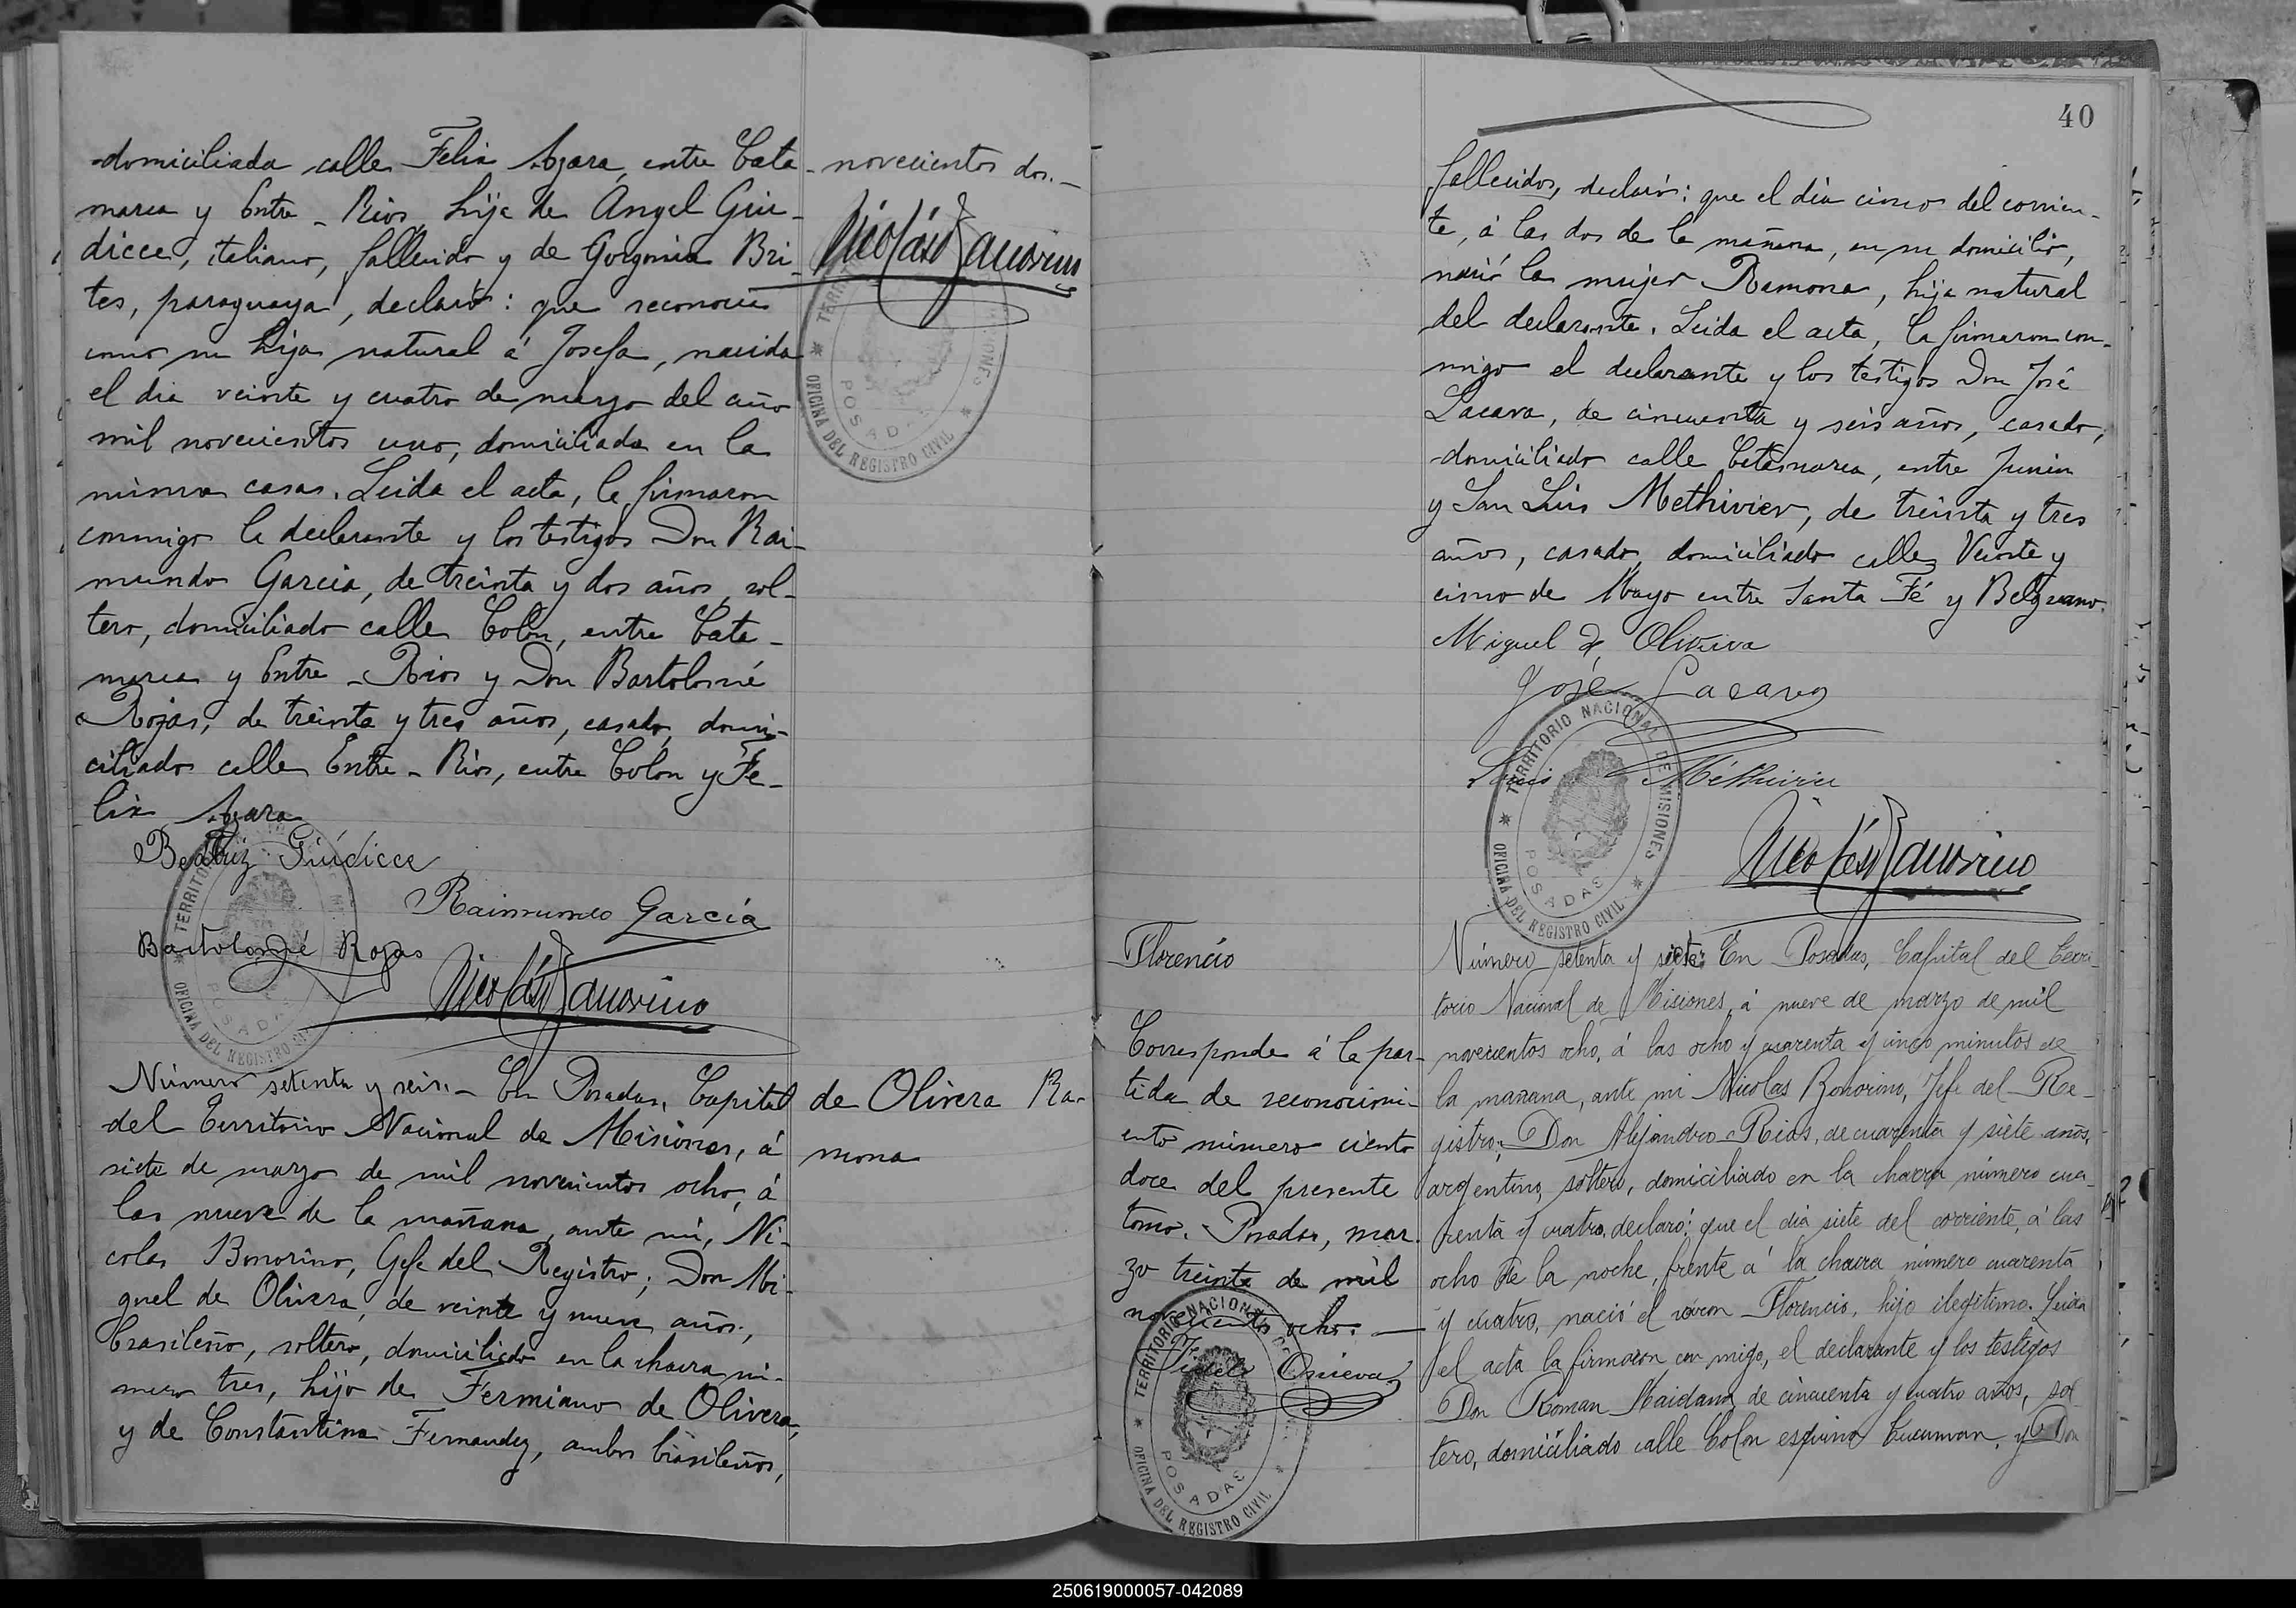 domiciliada calle Felix Azara, entre Cata-
marca y Entre-Rios, hija de Angel Giu-
dicce, italiano, fallecido y de Gorgonia Bri-
tes, paraguaya, declaró: que reconocia
como su hija natural á Josefa, nacida
el dia veinte y cuatro de marzo del año
mil novecientos uno, domiciliada en la
misma casa. Leida el acta, la firmaron
conmigo la declarante y los testigos Don Rai-
mundo Garcia, de treinta y dos años, sol-
tero, domiciliado calle Colon, entre Cata-
marca y Entre-Rios y Don Bartolomé
Rojas, de treinta y tres años, casado, domi-
ciliado calle Entre-Rios, entre Colon y Fe-
lix Azara
Beatriz Giudicce
Raimundo García
Bartolomé Rojas
Nicolás Bonorino
TERRITORIO
OFICINA DEL REGISTRO CIVIL
POSADAS
novecientos dos.-
Nicolás Bonorino
TERRITORIO MISIONES
OFICINA DEL REGISTRO CIVIL
POSADAS
Número setenta y seis.- En Posadas, Capital
del Territorio Nacional de Misiones, á
siete de marzo de mil novecientos ocho, á
las nueve de la mañana, ante mi, Ni-
colas Bonorino, Gefe del Registro; Don Mi-
guel de Olivera, de veinte y nueve años,
brasileño, soltero, domiciliado en la chacra nú-
mero tres, hijo de Fermiano de Olivera,
y de Constantina Fernandez, ambos brasileños,
de Olivera Ra-
mona
40
fallecidos, declaró: que el dia cinco del corrien-
te, á las dos de la mañana, en su domicilio,
nació la mujer Ramona, hija natural
del declarante. Leida el acta, la firmaron con-
migo el declarante y los testigos Don José
Lacava, de cincuenta y seis años, casado,
domiciliado calle Catamarca, entre Junin
y San Luis Methivier, de treinta y tres
años, casado, domiciliado calle Veinte y
cinco de Mayo entre Santa Fé y Belgrano.
Miguel de Oliveira
José Lacava
Luis Méthivier
Nicolás Bonorino
TERRITORIO NACIONAL DE MISIONES
OFICINA DEL REGISTRO CIVIL
POSADAS
Florencio
Corresponde á la par-
tida de reconocimi-
ento número ciento
doce del presente
tomo. Posadas, mar-
zo treinta de mil
novecientos ocho.
TERRITORIO NACIONAL
OFICINA DEL REGISTRO CIVIL
POSADAS
Número setenta y siete: En Posadas, Capital del Terri-
torio Nacional de Misiones, á nueve de marzo de mil
novecientos ocho, á las ocho y cuarenta y cinco minutos de
la mañana, ante mi Nicolas Bonorino, Jefe del Re-
gistro; Don Alejandro Rios, de cuarenta y siete años,
argentino, soltero, domiciliado en la chacra número cua-
renta y cuatro, declaró: que el dia siete del corriente, á las
ocho de la noche, frente á la chacra número cuarenta
y cuatro, nació el varon Florencio, hijo ilegitimo. Leida
el acta la firmaron con migo, el declarante y los testigos
Don Roman Maidana, de cincuenta y cuatro años, sol-
tero, domiciliado calle Colon esquina Tucuman, y Don
250619000057-042089